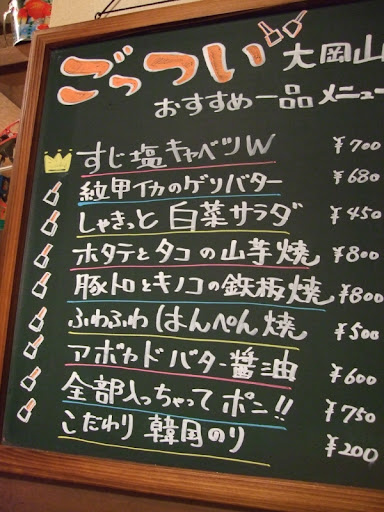 ごっつい 大岡山
おすすめ一品メニュー
すじ塩キャベツW ¥700
紋甲イカのゲソバター ¥680
しゃきっと白菜サラダ ¥450
ホタテとタコの山芋焼 ¥800
豚トロとキノコの鉄板焼 ¥800
ふわふわはんぺん焼 ¥500
アボカドバター醤油 ¥600
全部入っちゃってポン!! ¥750
こだわり韓国のり ¥200